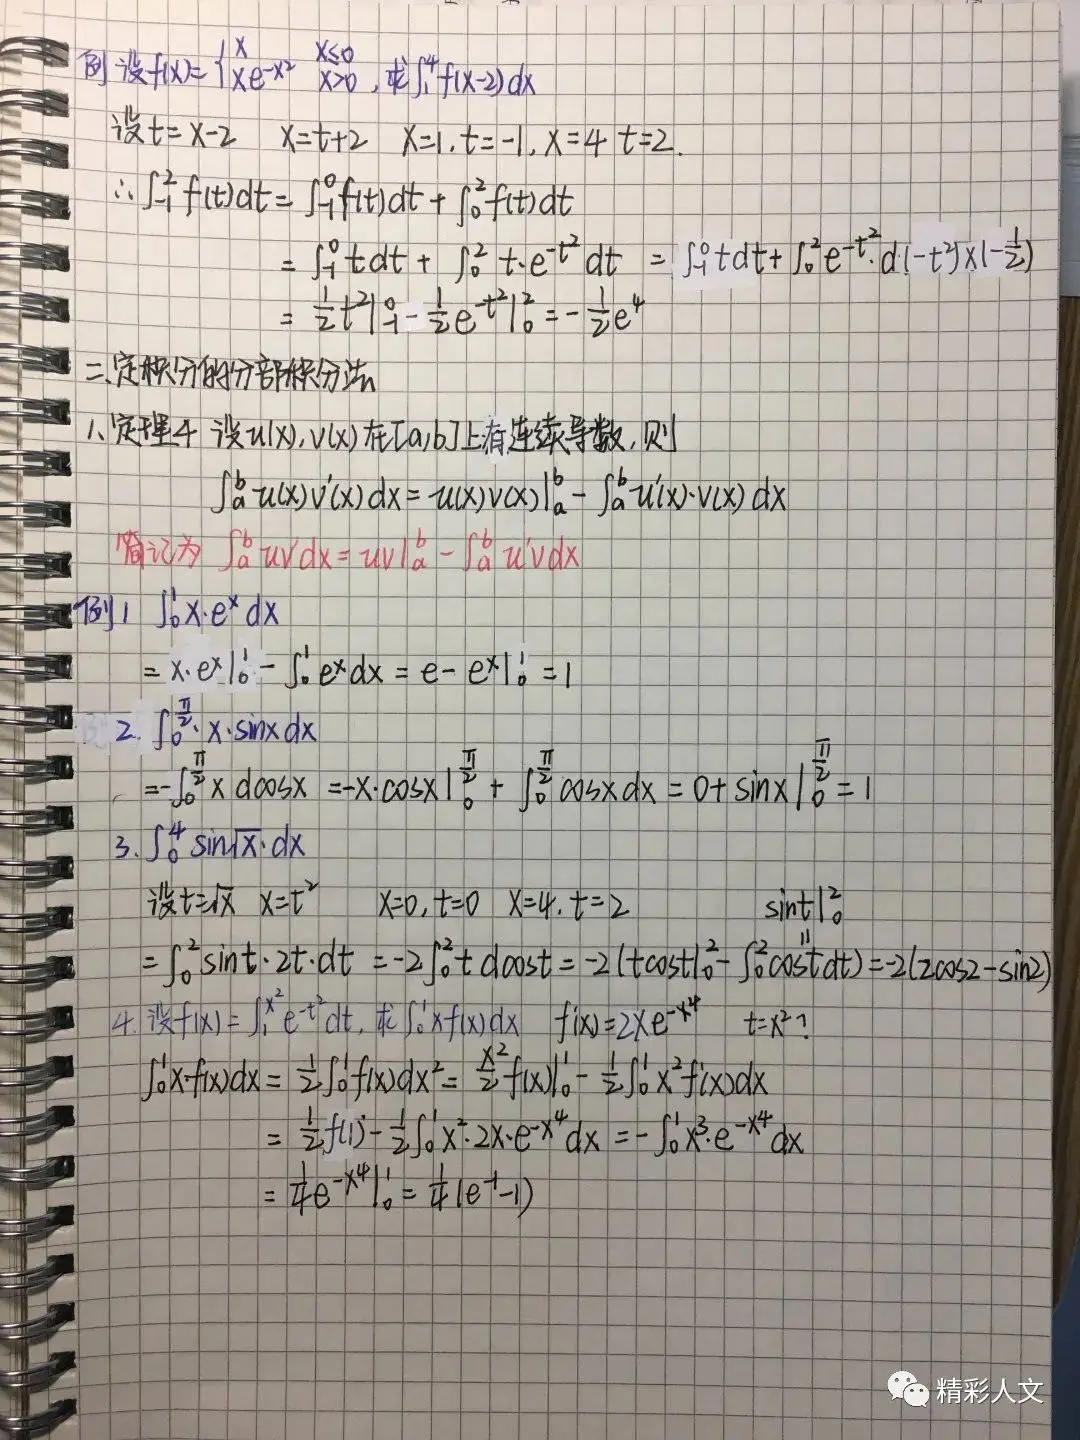 例 设f(x)={x x≤0
xe^{-x²} x>0, 求∫₁⁴f(x-2)dx
设t=x-2 x=t+2 x=1,t=-1,x=4 t=2.
∴∫₋₁²f(t)dt=∫₋₁⁰f(t)dt+∫₀²f(t)dt
=∫₋₁⁰tdt+∫₀²t·e^{-t²}dt =∫₋₁⁰tdt+∫₀²e^{-t²}·d(-t²)×(-1/2)
=1/2t²|₋₁⁰-1/2e^{-t²}|₀²=-1/2e⁴
二、定积分的分部积分法
1、定理4 设u(x),v(x)在[a,b]上有连续导数,则
∫ₐᵇu(x)v'(x)dx=u(x)v(x)|ₐᵇ-∫ₐᵇu'(x)·v(x)dx
简记为 ∫ₐᵇuv'dx=uv|ₐᵇ-∫ₐᵇu'vdx
例1 ∫₀¹x·eˣdx
=x·eˣ|₀¹-∫₀¹eˣdx=e-eˣ|₀¹=1
2.∫₀^{π/2}·x·sinxdx
=-∫₀^{π/2}x dcosx =-x·cosx|₀^{π/2}+∫₀^{π/2}cosxdx=0+sinx|₀^{π/2}=1
3.∫₀⁴sin√x·dx
设t=√x x=t² x=0,t=0 x=4,t=2 sint|₀²
=∫₀²sint·2t·dt =-2∫₀²t dcost=-2(tcost|₀²-∫₀²costdt)=-2(2cos2-sin2)
4.设f(x)=∫₁^{x²}e^{-t²}dt,求∫₀¹xf(x)dx f'(x)=2xe^{-x⁴} t=x²?
∫₀¹x·f(x)dx=1/2∫₀¹f(x)dx²=x²/2f(x)|₀¹-1/2∫₀¹x²f'(x)dx
=1/2f(1)-1/2∫₀¹x²·2x·e^{-x⁴}dx=-∫₀¹x³·e^{-x⁴}dx
=1/4e^{-x⁴}|₀¹=1/4(e⁻¹-1)
精彩人文